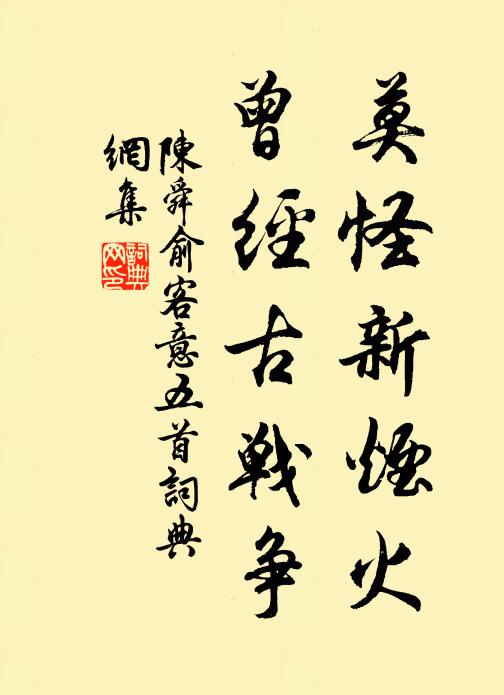 莫怪新煙火
曾經古戰争
陳舜俞客意五首詞典
網集
詞典
网印